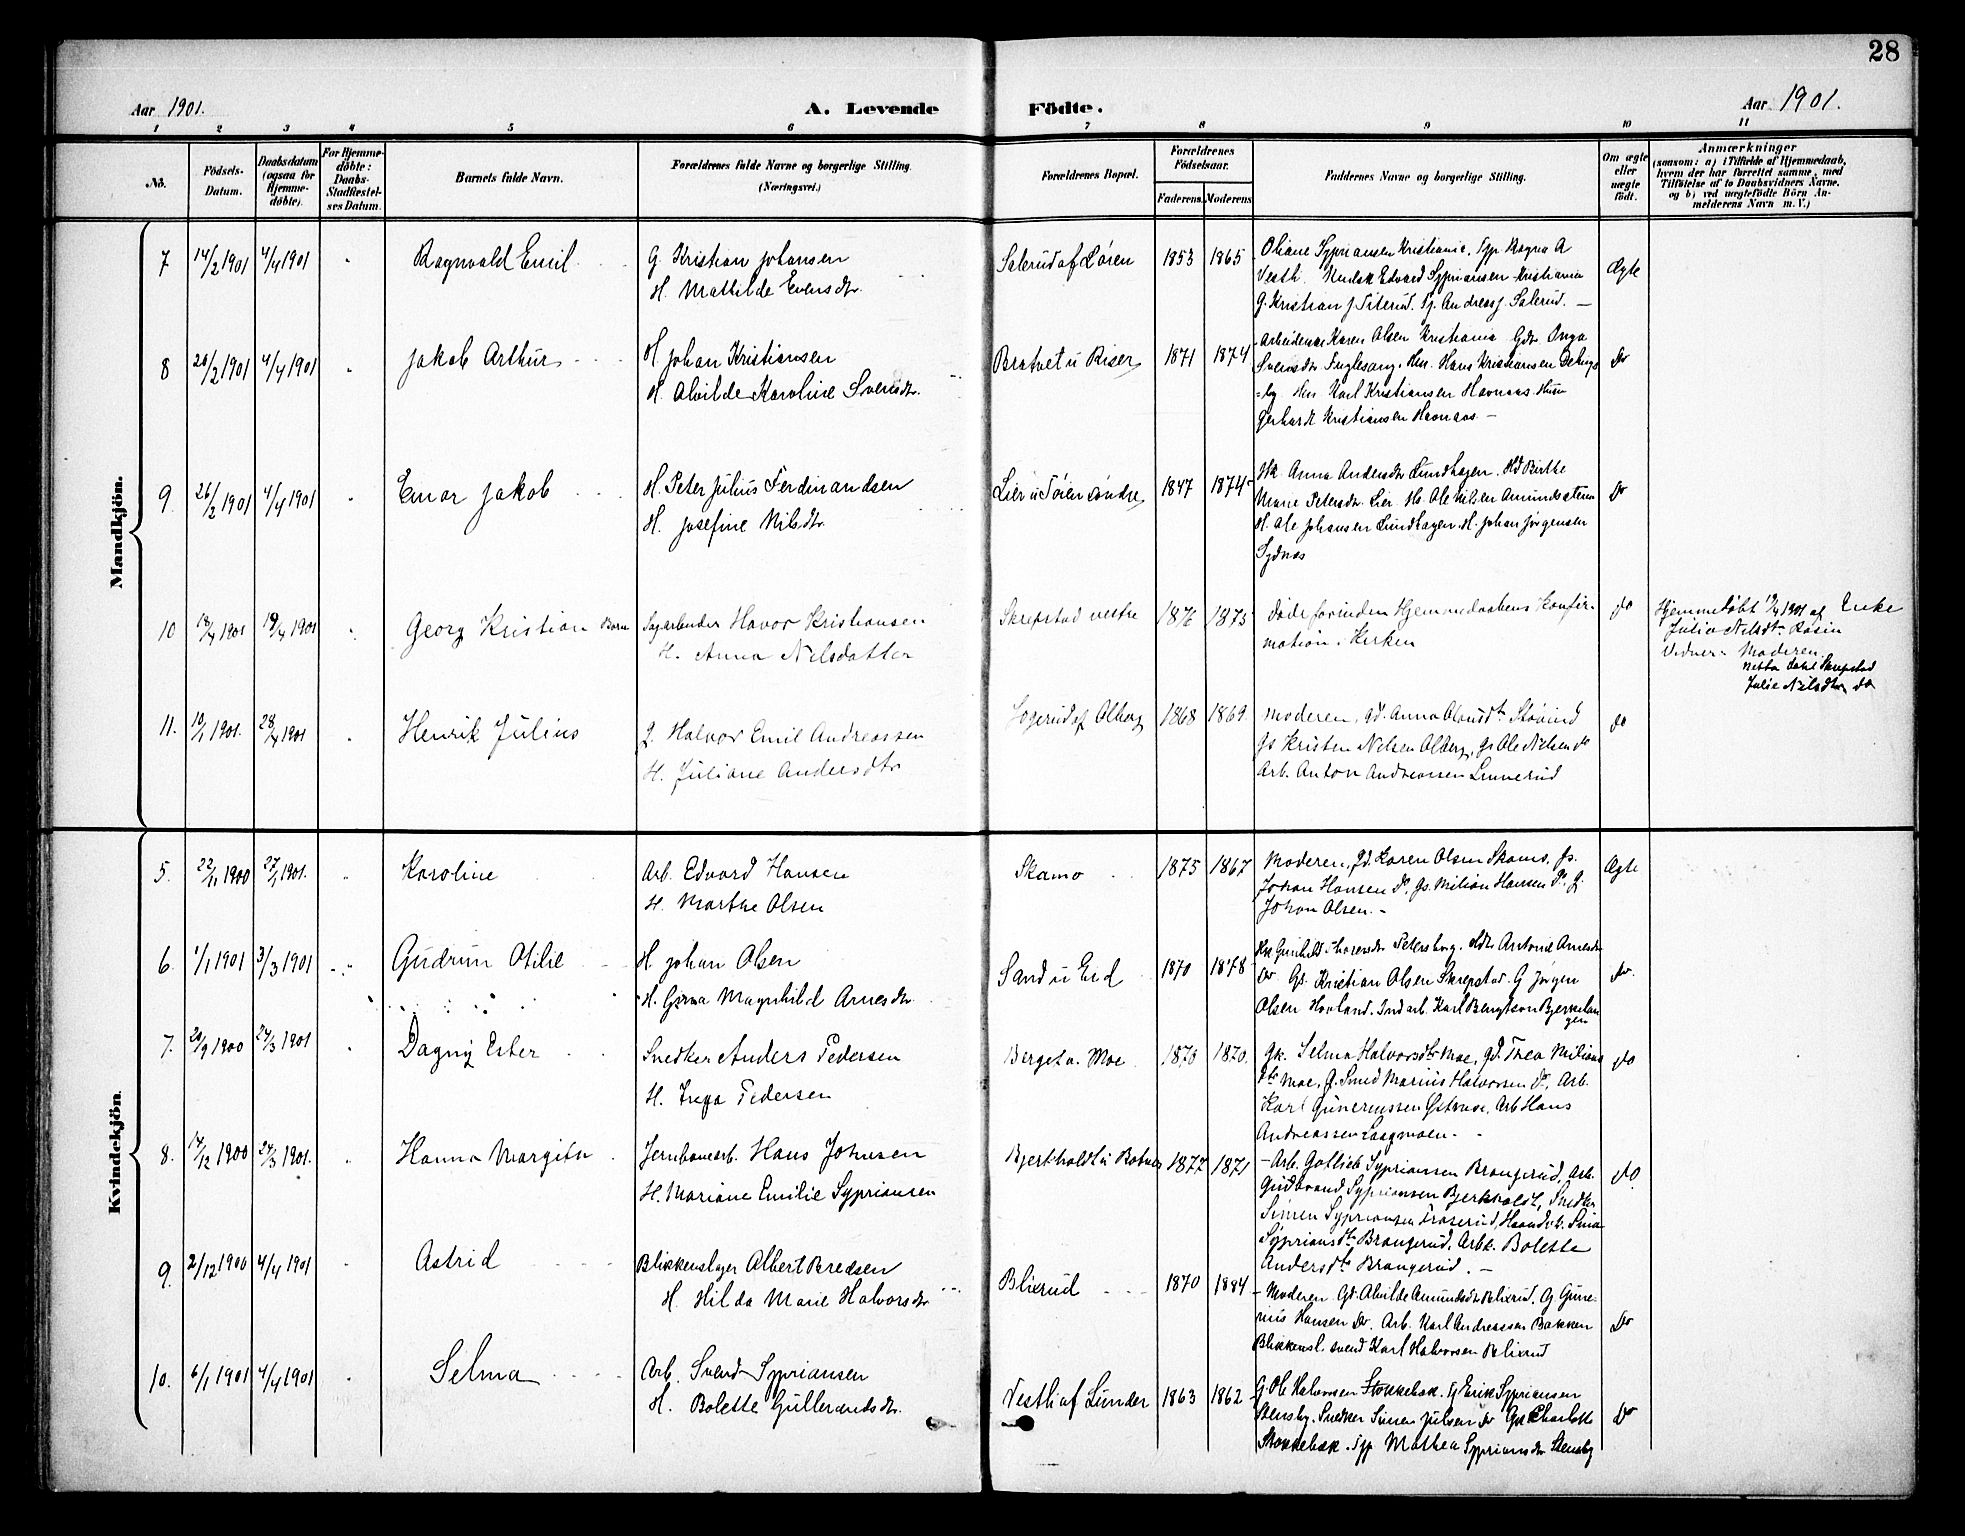 28
Aar 1901.
A. Levende Födte.
Aar 1901.
1 2 3 4 5 6 7 8 9 10 11
No.
Födsels-Datum.
Daabsdatum (ogsaa for Hjemme-döbte).
For Hjemme-döbte: Daabs-Stadfæstel-ses Datum.
Barnets fulde Navn.
Forældrenes fulde Navne og borgerlige Stilling. (Næringsvei.)
Forældrenes Bopæl.
Forældrenes Födselsaar.
Faderens. Moderens
Faddernes Navne og borgerlige Stilling.
Om ægte eller uægte födt.
Anmærkninger
(saasom: a) i Tilfælde af Hjemmedaab,
hvem der har forrettet samme, med
Tilföielse af to Daabsvidners Navne,
og b) ved uægtefödte Börn An-
melderens Navn m. V.)
Mandkjön.
7 14/2 1901 4/4 1901 Ragnvald Emil G. Kristian Johansen
H. Mathilde Evensdtr.
Salerud af Løren 1853 1865 Oliane Sypriansen Kristiania. Pige Ragna A
Vestli. Edvard Sypriansen Kristiania
G. Kristian J. Titerud. Andreas J. Salerud. —
Ægte
8 20/2 1901 4/4 1901 Jakob Arthur H Johan Kristiansen
H. Alvilde Karoline Svensdtr.
Bratvet u Riser 1871 1874 Arbeiderske Karen Olsen Kristiania Gdr. Inga
Svensdtr Fuglesang. Hm. Hans Kristiansen
Hm Karl Kristiansen Havnaas.
Gerhardt Kristiansen Havnaas —
do
9. 26/2 1901 4/4 1901 Einar Jakob H. Peter Julius Ferdinandsen
H. Josefine Nilsdtr.
Lier u Tøien søndre 1847 1874 Anna Andersdtr Lundhagen. Birthe
Marie Petersdtr. Lier. Ole Nilsen
H. Ole Johansen Lundhagen. H. Johan Jørgensen
Sydnæs
do
10 18/4 1901 19/4 1901 Georg Kristian Barn Sagarbeider Havor Kristiansen
H. Anna Nilsdatter
Skrepstad vestre 1876 1875 Døde forinden Hjemmedaabens Konfir-
mation i Kirken
do
Hjemmedøbt 19/4 1901 af Enke
Julie Nilsdtr Rasin
Vidner: Moderen.
Netta Skrepstad
Julie Nilsdtr. do
11. 10/1 1901. 28/4 1901 Henrik Julius G. Halvor Emil Andreassen
H. Juliane Andersdtr
Sogerud af Olberg 1868 1869 Moderen, Gd. Anna Stövind
Gs Kristen Nilsen Olberg, Gs Ole Nilsen do
Arb. Anton Andreassen Linnerud
do
Kvindekjön.
5. 22/11 1900 27/1 1901. Karoline Arb. Edvard Hansen
H. Marthe Olsen
Skamo 1875 1867 Moderen, Gd. Karen Olsen Skamo, Gs.
Johan Hansen do, Gs. Milian Hansen do. G.
Johan Olsen. –
Ægte
6. 1/1 1901 3/3 1901 Gudrun Otilie H Johan Olsen
H. Gina Magnhild Arnesdtr.
Sand u Eid 1870 1878 Petersborg. Antone Arnesdtr
do. Gs. Kristian Olsen Skrepstad. G Jørgen
Olsen Hovland. Ind arb. Karl Bengtson Bjerkelan-
gen
do.
7. 20/9 1900 24/3 1901 Dagny Ester Snedker Anders Pedersen
H. Inga Pedersen
Berget u. Moe 1870 1870. Gk. Selma Halvorsdtr Moe, Gd. Thea Milians
dtr Moe, G. Smed Marius Halvorsen do, Arb.
Karl Gunerussen Østmoe, Arb Hans
Andreassen Laagmoen.
do
8. 14/12 1900 24/3 1901. Hanna Margith Jernbanearb. Hans Johnsen
H. Mariane Emilie Sypriansen
Bjerkholdt u Botner 1872 1871 – Arb. Gotlieb Syprianssen Brangerud, Arb.
Gudbrand Syprianssen Bjerkholdt, Snedker
Simen Syprianssen Fraserud,
Sypriansdtr Brangerud, Arbk. Bolette
Andersdtr Brangerud. –
do
9. 2/12 1900 4/4 1901 Astrid Blikkenslager Albert Bredsen
H. Hilda Marie Halvorsdtr
Blixrud 1870 1884 – Moderen. Gd. Alvilde Amundsdtr Blixrud. G Gune-
rius Hansen do. Arb. Karl Andreassen Bakken
Blikkensl. svend Karl Halvorsen Blixrud
Do
10. 6/1 1901 4/4 1901 Selma Arb. Svend Sypriansen
H. Bolette Gulbrandsdtr.
Vestli af Lunder 1863 1862 G. Ole Halvorsen Stokkebæk. G Erik Sypriansen
Stensby. Snedker Simen Julsen do Gk Charlotte
Stokkebæk. Mathea Sypriansdtr Stensby
Do